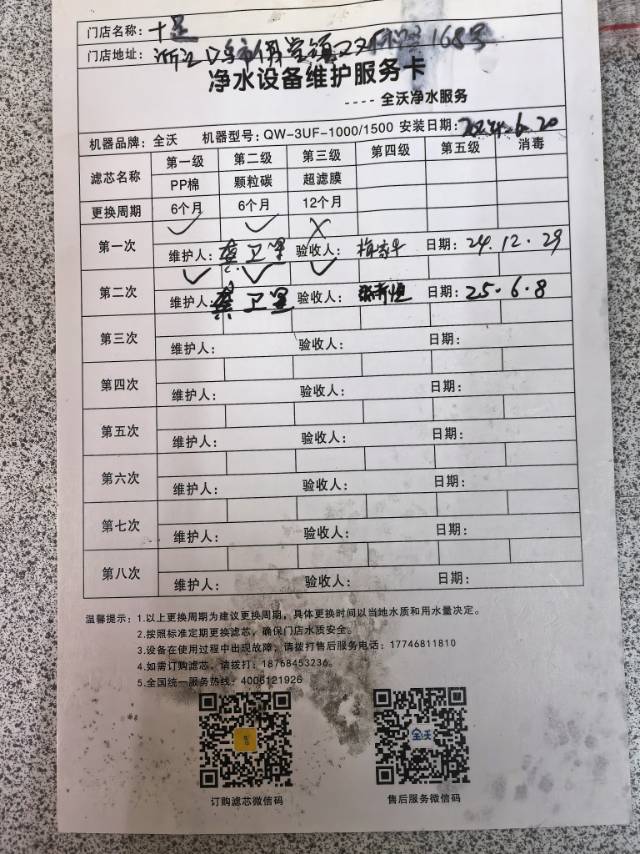 门店名称：十足
门店地址：浙江 168号
净水设备维护服务卡
----全沃净水服务
机器品牌：全沃 机器型号：QW-3UF-1000/1500 安装日期：2024.6.20
滤芯名称 第一级 第二级 第三级 第四级 第五级 消毒
PP棉 颗粒碳 超滤膜
更换周期 6个月 6个月 12个月
第一次 ✓ ✓ ×
维护人：蔡卫军 验收人： 日期：24.12.29
第二次 ✓ ✓ ✓
维护人：蔡卫军 验收人： 日期：25.6.8
第三次
维护人： 验收人： 日期：
第四次
维护人： 验收人： 日期：
第五次
维护人： 验收人： 日期：
第六次
维护人： 验收人： 日期：
第七次
维护人： 验收人： 日期：
第八次
维护人： 验收人： 日期：
温馨提示：1.以上更换周期为建议更换周期，具体更换时间以当地水质和用水量决定。
2.按照标准定期更换滤芯，确保门店水质安全。
3.设备在使用过程中出现故障，请拨打售后服务电话：17746811810
4.如需订购滤芯，请拨打：18768453236。
5.全国统一服务热线：4006121926
全沃
订购滤芯微信码 售后服务微信码